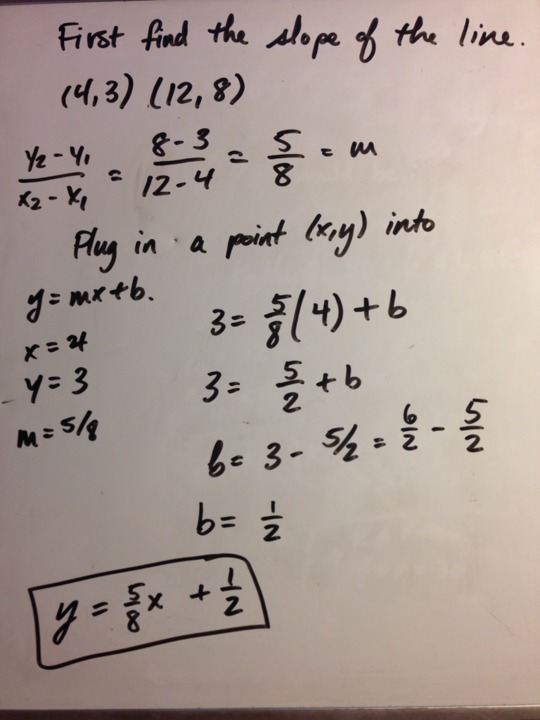 First find the slope of the line.
(4,3) (12,8)
y₂-y₁/x₂-x₁ = 8-3/12-4 = 5/8 = m
Plug in a point (x,y) into
y=mx+b.
3= 5/8(4)+b
x=4
y=3
3= 5/2+b
m=5/8
b= 3- 5/2 = 6/2 - 5/2
b= 1/2
y = 5/8x + 1/2